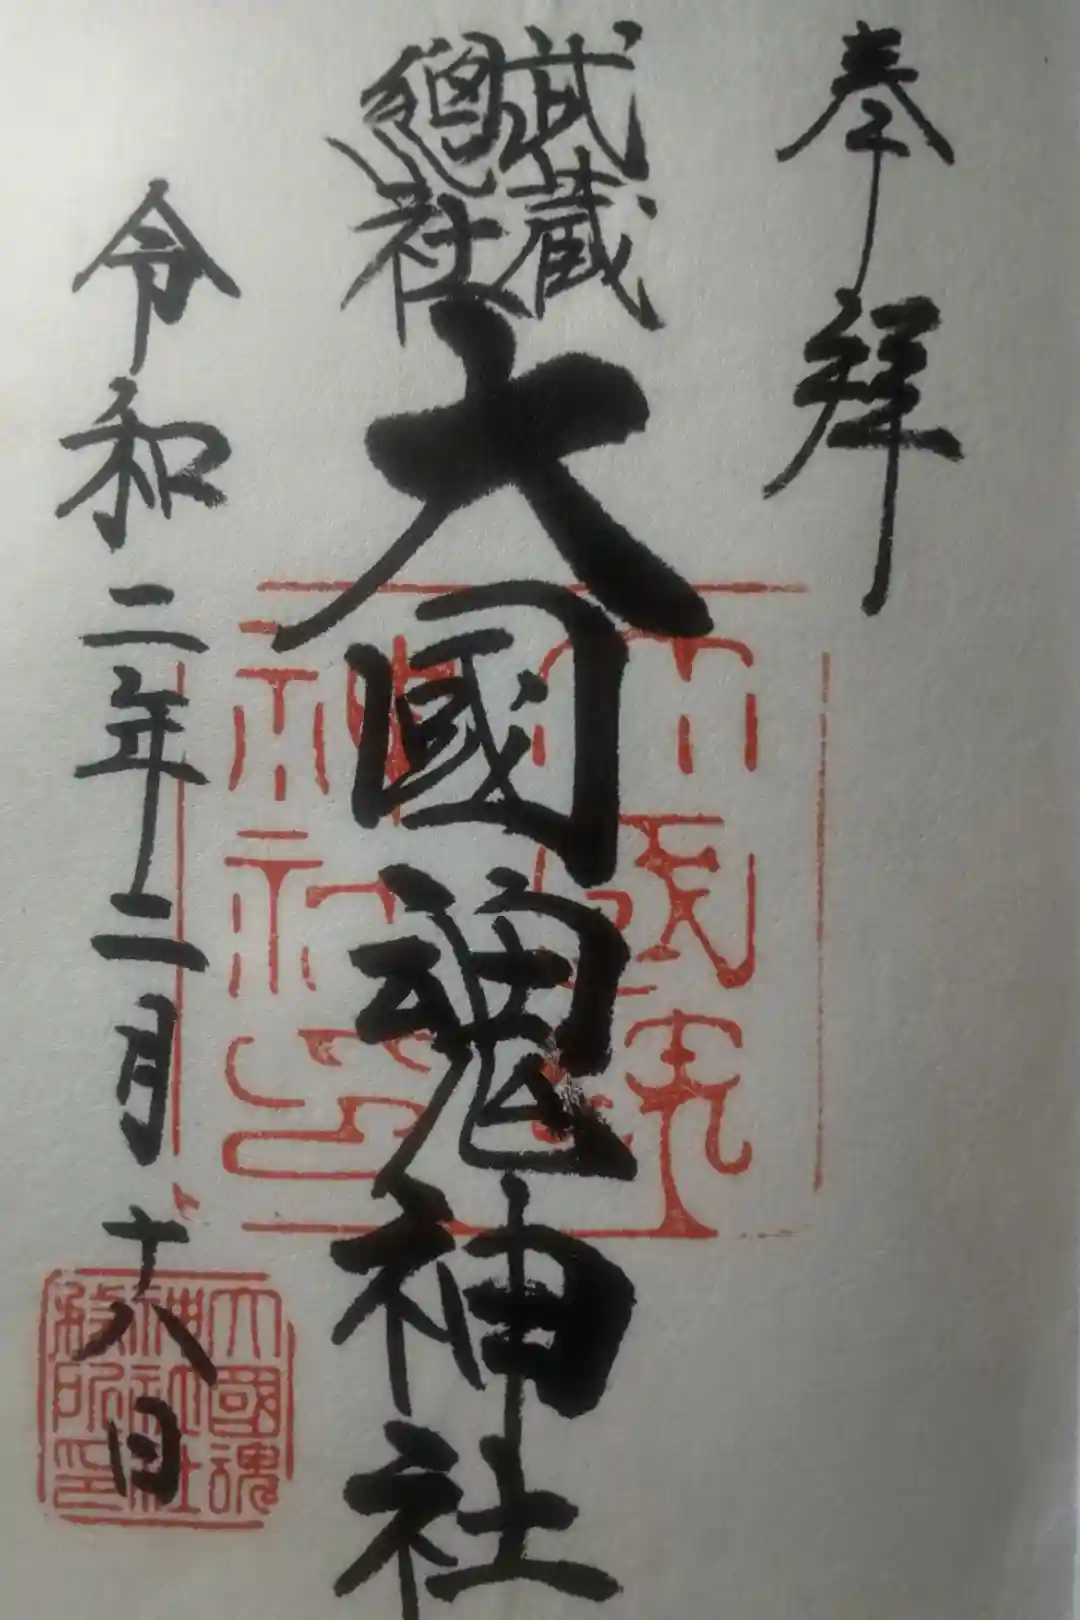 奉拝
武蔵
總社
大國魂神社
令和二年二月十八日
大國魂
神社印
大國魂
神社社
務所印